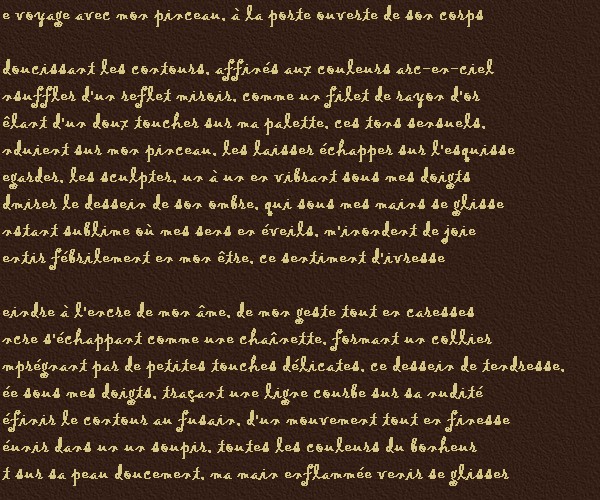 e voyage avec mon pinceau, à la porte ouverte de son corps
doucissant les contours, affinés aux couleurs arc-en-ciel
nsuffler d'un reflet miroir, comme un filet de rayon d'or
êlant d'un doux toucher sur ma palette, ces tons sensuels,
nduient sur mon pinceau, les laisser échapper sur l'esquisse
egarder, les sculpter, un à un en vibrant sous mes doigts
dmirer le dessein de son ombre, qui sous mes mains se glisse
nstant sublime où mes sens en éveils, m'inondent de joie
entir fébrilement en mon être, ce sentiment d'ivresse
eindre à l'encre de mon âme, de mon geste tout en caresses
ncre s'échappant comme une chaînette, formant un collier
mprégnant par de petites touches délicates, ce dessein de tendresse,
ée sous mes doigts, traçant une ligne courbe sur sa nudité
éfinir le contour au fusain, d'un mouvement tout en finesse
éunir dans un un soupir, toutes les couleurs du bonheur
t sur sa peau doucement, ma main enflammée venir se glisser